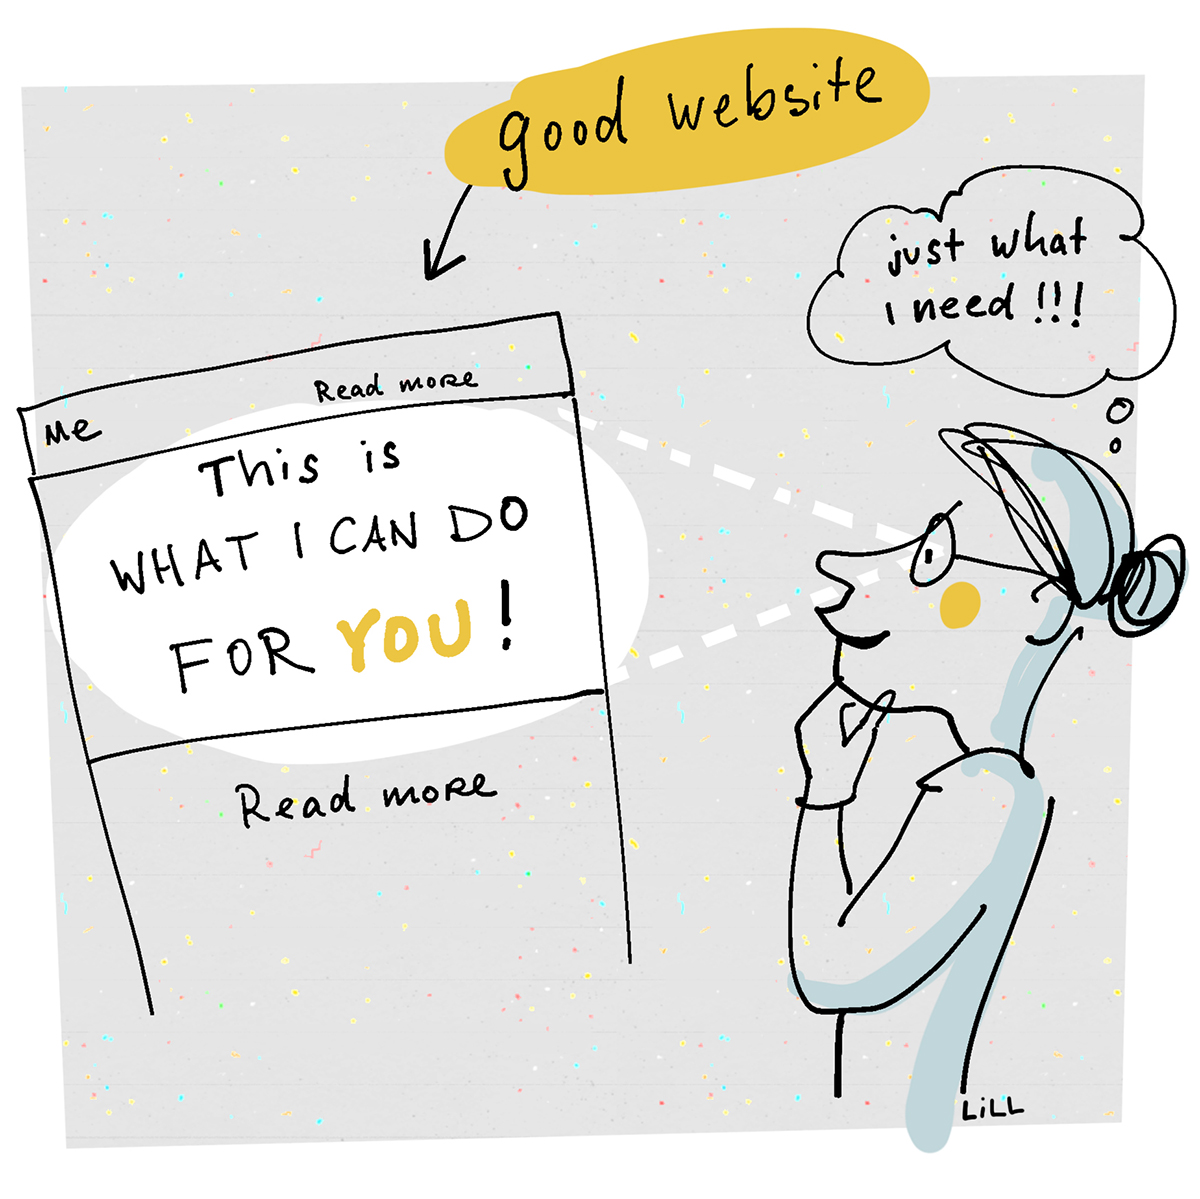 good website
just what
i need !!!
Me
Read more
This is
WHAT I CAN DO
FOR YOU!
Read more
LiLL